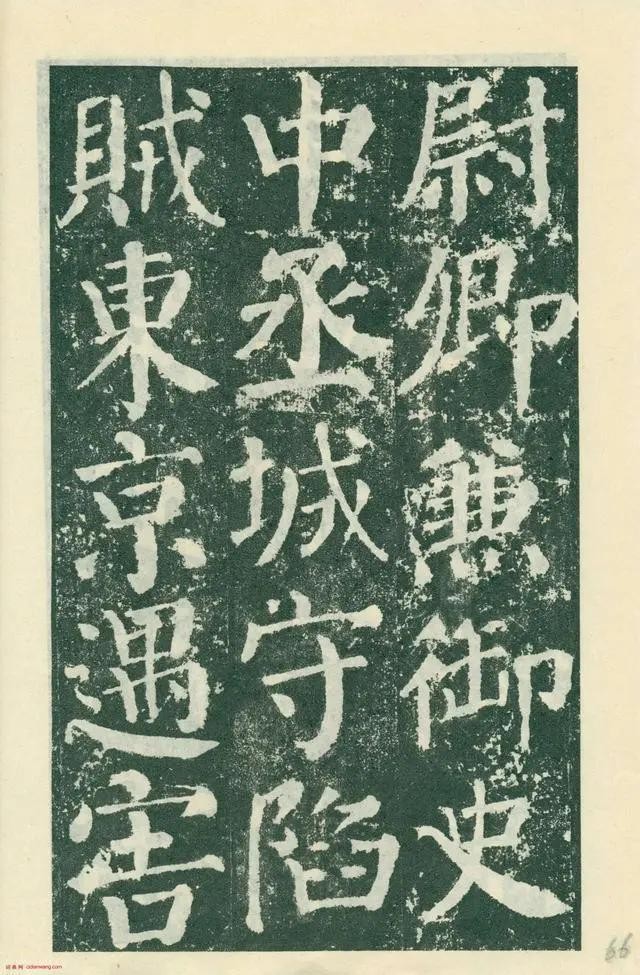 尉卿兼御史
中丞城守陷
賊東京遇害
66